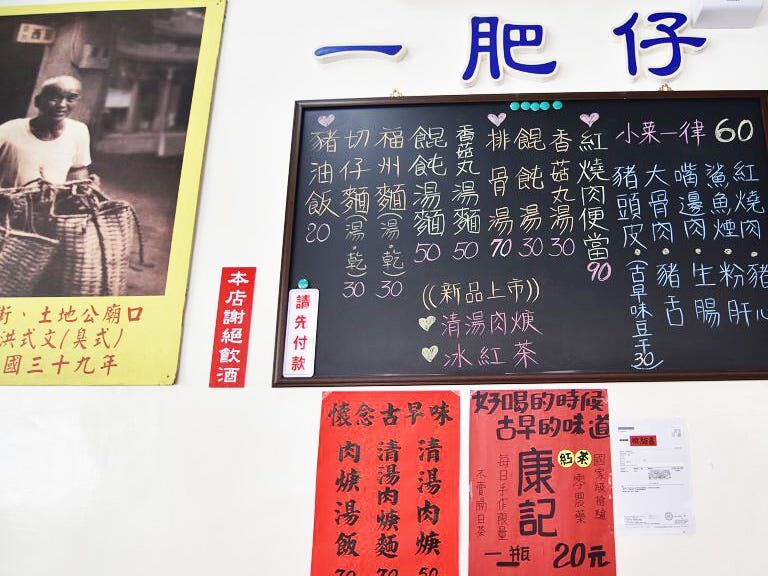 一肥仔
豬油飯 20
切仔麵(湯·乾) 30
福州麵(湯·乾) 30
餛飩湯麵 50
香菇丸湯麵 50
排骨湯 70
餛飩湯 30
香菇丸湯 30
紅燒肉便當 90
小菜一律 60
豬頭皮
大骨肉
嘴邊肉
鯊魚煙
紅燒肉
(古早味豆干 30)
豬舌
生腸
粉肝
豬心
((新品上市))
清湯肉焿
冰紅茶
請先付款
本店謝絕飲酒
街、土地公廟口
洪式文(臭式)
國三十九年
懷念古早味
清湯肉焿 50
清湯肉焿麵 70
肉焿湯飯 70
好喝的時候
古早的味道
康記
紅茶
國家級檢驗
零農藥
每日手作限量
不賣隔日茶
一瓶 20元